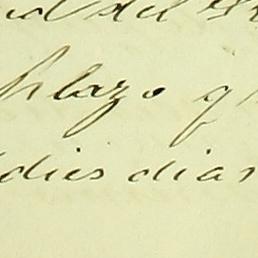 del
plazo q
dies dias